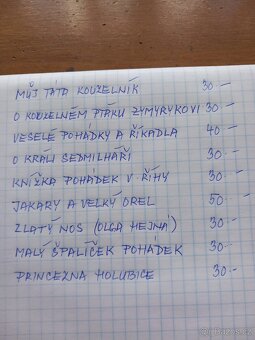 MŮJ TÁTA KOUZELNÍK 30.-
O KOUZELNÉM PTÁKU ZYMYRYKOVI 30.-
VESELÉ POHÁDKY A ŘÍKADLA 40.-
O KRÁLI SEDMILHÁŘI 30.-
KNÍŽKA POHÁDEK V. ŘÍHY 30.-
JAKARY A VELKÝ OREL 50.-
ZLATÝ NOS (OLGA HEJNÁ) 30.-
MALÝ ŠPALÍČEK POHÁDEK 30.-
PRINCEZNA HOLUBICE 30.-